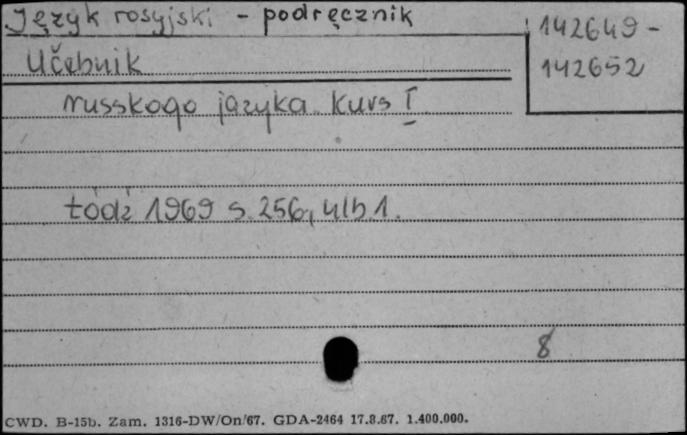 Język rosyjski - podręcznik
142649 -
142652
Učebnik
russkogo jazyka. Kurs I
Łódź 1969 s. 256, ulb 1.
8
CWD. B-15b. Zam. 1316-DW/On/67. GDA-2464 17.8.67. 1.400.000.